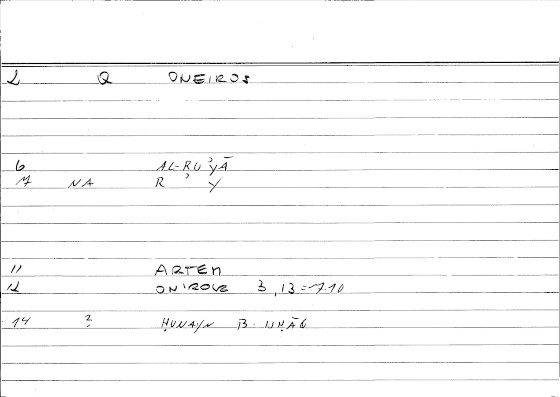 2 Q ONEIROS
6 AL-RU'YĀ
M NA R ' Y
11 ARTEM
12 ONIROVE 3, 13 =
14 ? ḤUNAYN B. ISḤĀQ